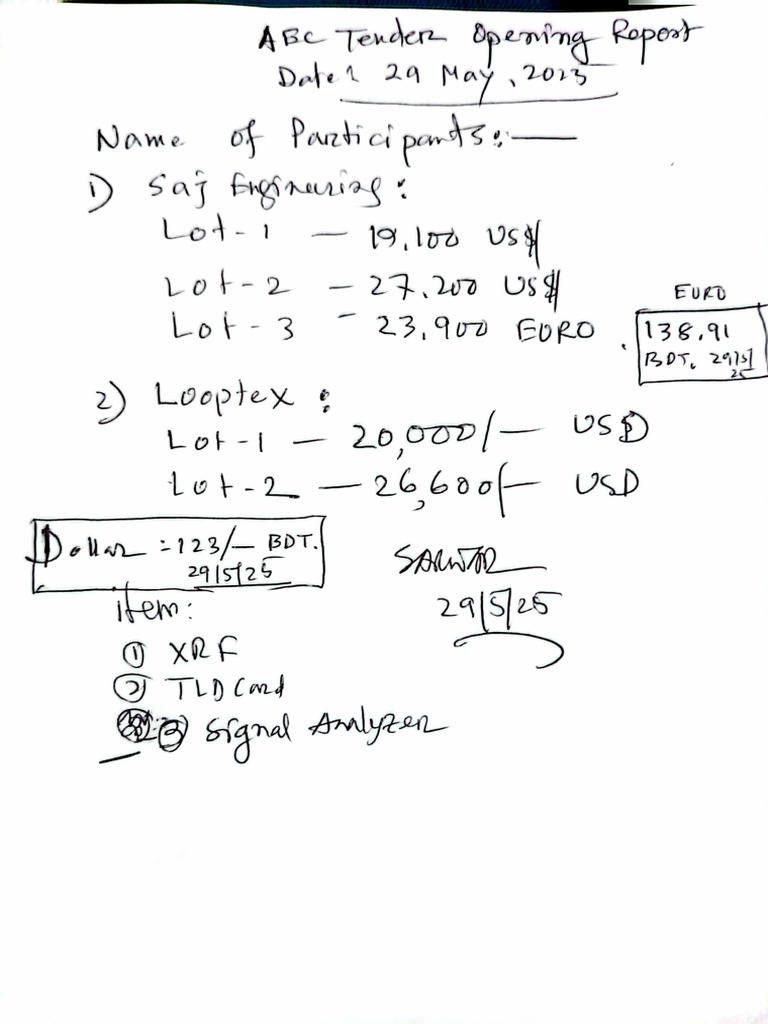 ABC Tender Opening Report
Date: 29 May, 2023
Name of Participants:—
1) Saj Engineering:
Lot-1 — 19,100 US$
Lot-2 — 27,200 US$
Lot-3 - 23,900 EURO.
EURO
138.91
BDT. 29/5/
25
2) Looptex :
Lot-1 — 20,000/— USD
Lot-2 — 26,600/— USD
Dollar = 123/— BDT.
29/5/25
SARWAR
29/5/25
item:
① XRF
② TLD Card
③ Signal Analyzer